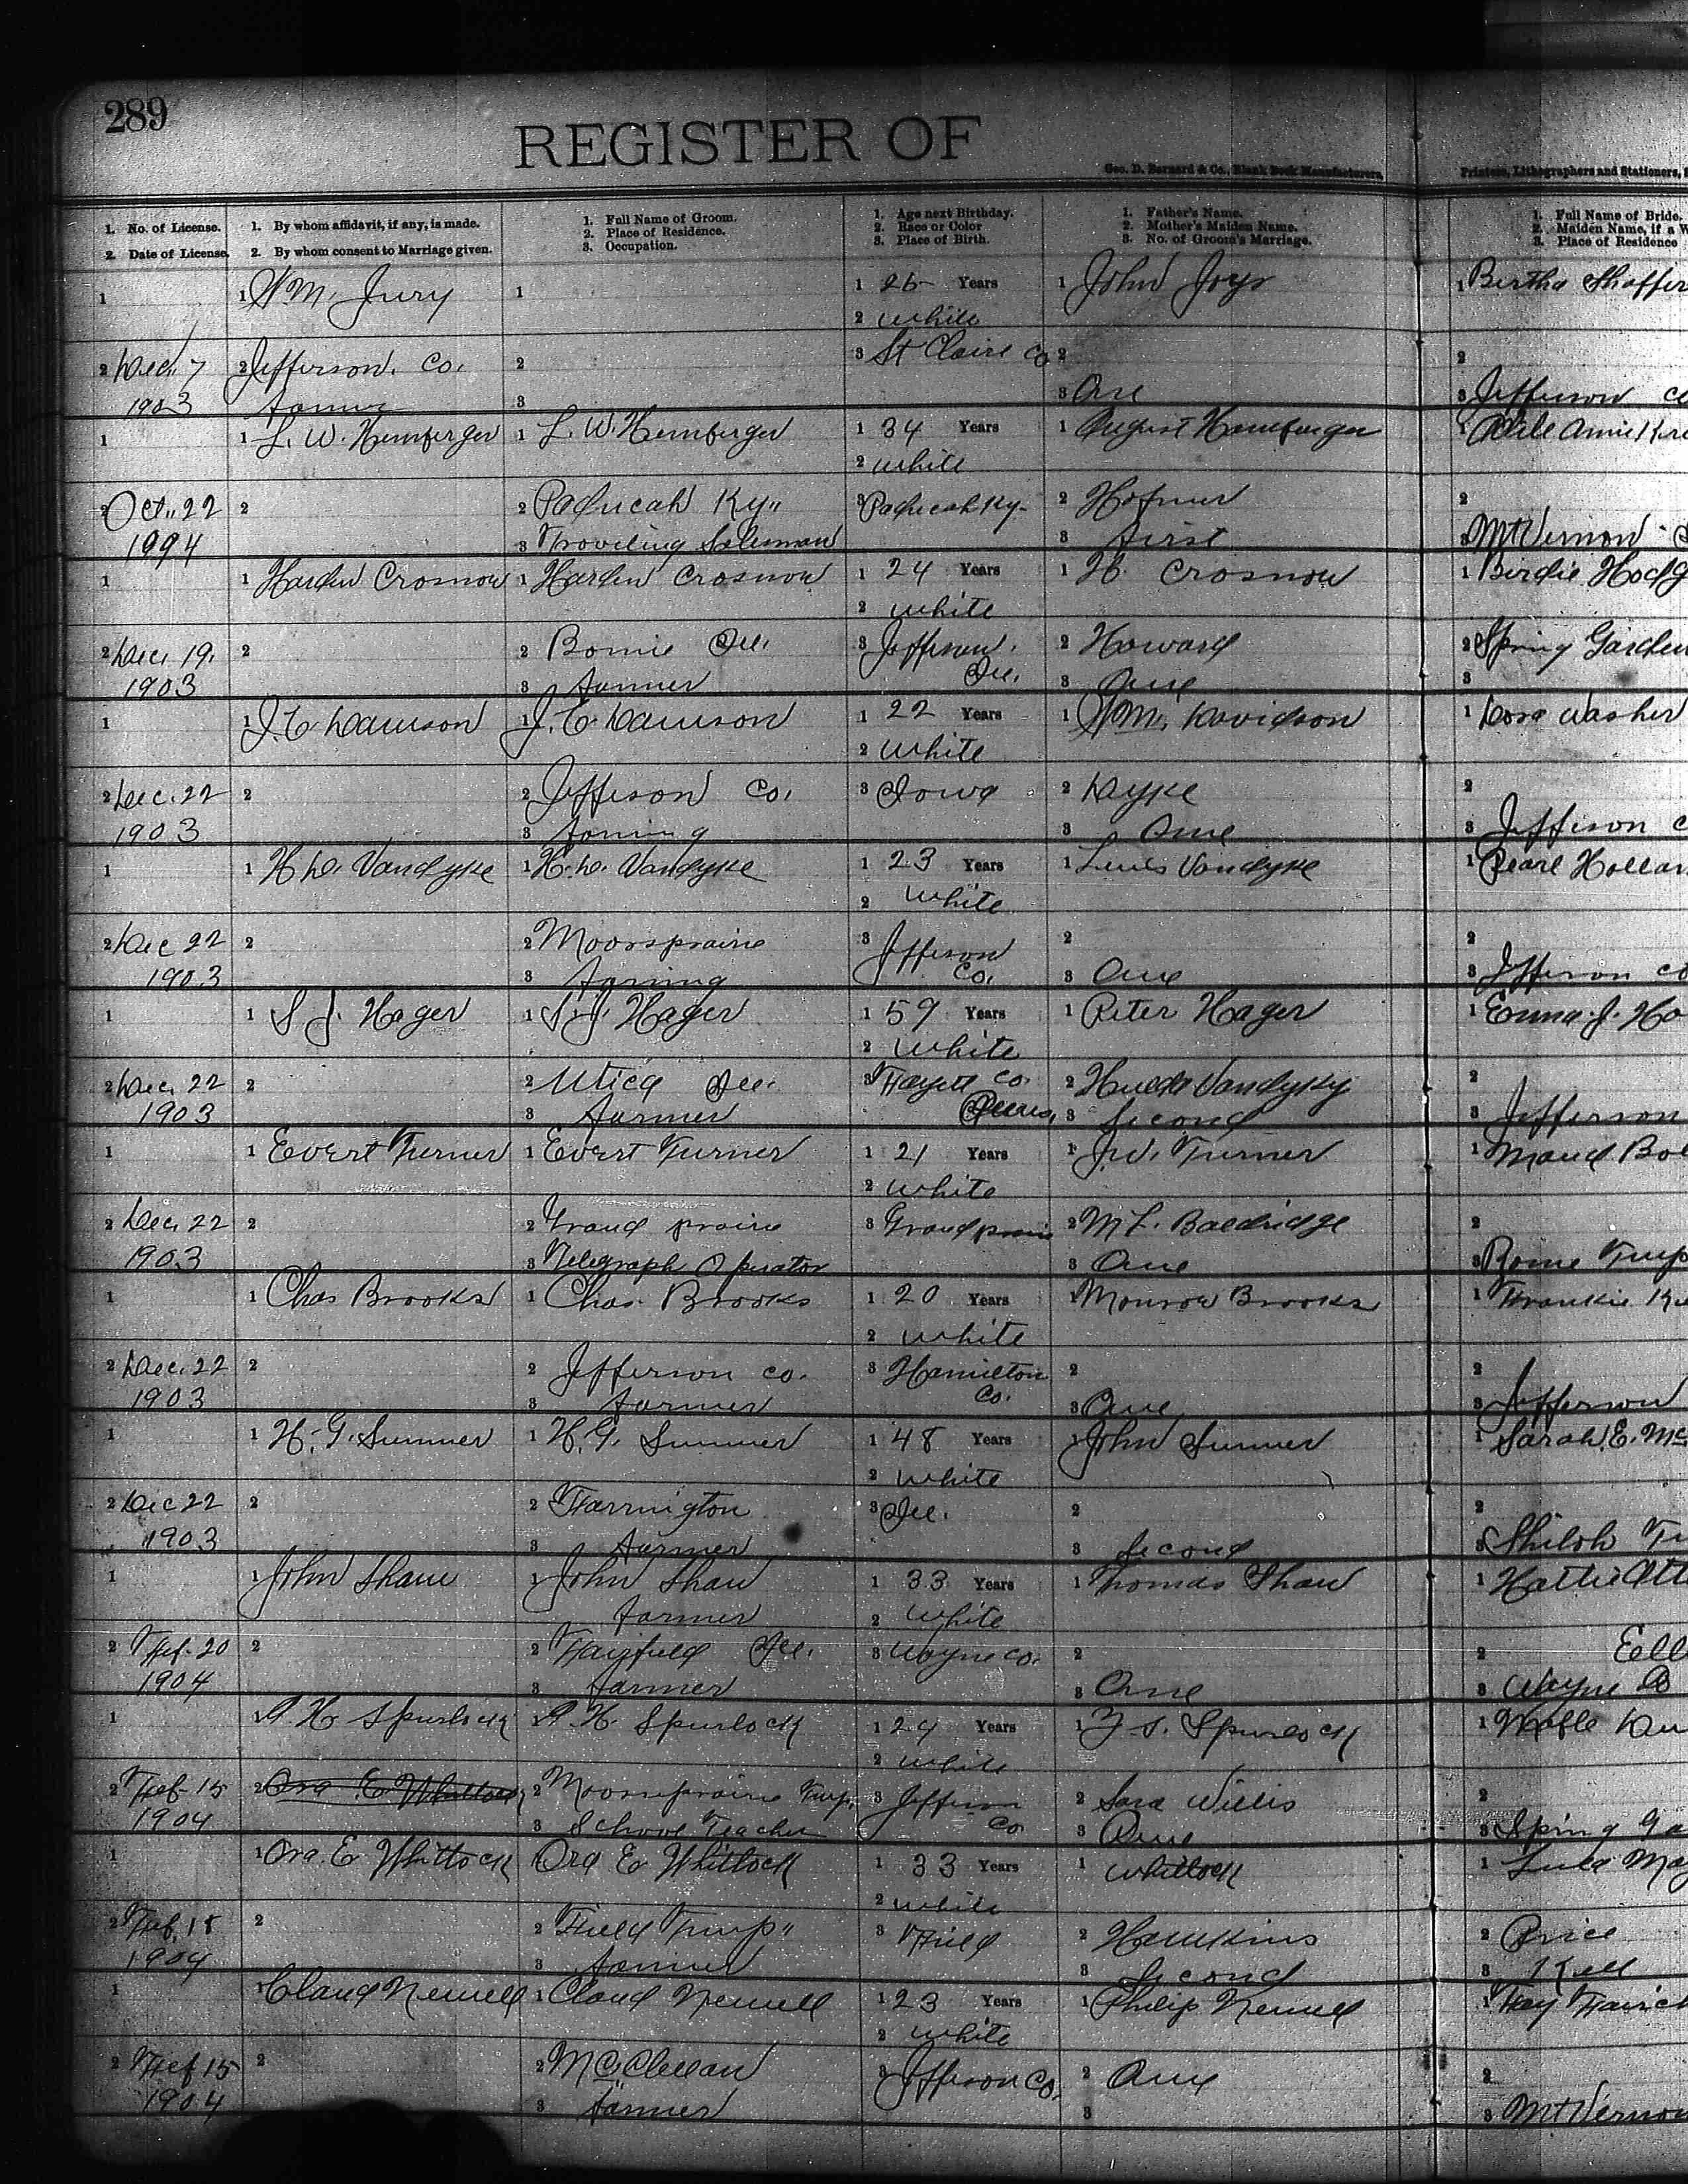 289
REGISTER OF
Geo. D. Barnard & Co., Blank Book Manufacturers,
Printers, Lithographers and Stationers,
1. No. of License.
2. Date of License.
1. By whom affidavit, if any, is made.
2. By whom consent to Marriage given.
1. Full Name of Groom.
2. Place of Residence.
3. Occupation.
1. Age next Birthday.
2. Race or Color
3. Place of Birth.
1. Father's Name.
2. Mother's Maiden Name.
3. No. of Groom's Marriage.
1. Full Name of Bride.
2. Maiden Name, if a W
3. Place of Residence
1 1 Wm. Jury 1 1 26 Years 1 John Joys 1 Bertha Shaffer
2 White
2 Dec. 7 2 Jefferson. Co. 2 3 St Claire Co 2 2
1903 3 3 One 3 Jefferson co
1 1 L. W. Hemberger 1 L. W. Hemberger 1 34 Years 1 August Hemberger 1
2 white
2 Oct. 22 2 2 Paducah Ky" 3 Paducah Ky- 2 2
1994 3 Traveling Salesman 3 first 3 Mt Vernon
1 1 Harden Crosnow 1 Harden Crosnow 1 24 Years 1 H. Crosnow 1 Birdie Hodg
2 white
2 Dec. 19. 2 2 Bonnie Ill. 3 Jefferson. 2 Howard 2 Spring Garden
1903 3 farmer Ill. 3 One 3
1 1 J. C. Davison 1 J. C. Davison 1 22 Years 1 Wm. Davidson 1 Dora Washer
2 White
2 Dec. 22 2 2 Jefferson Co. 3 Iowa 2 Dyke 2
1903 3 farming 3 One 3 Jefferson c
1 1 H. D. Vandyke 1 H. D. Vandyke 1 23 Years 1 Lewis Vandyke 1 Pearl Hollan
2 White
2 Dec 22 2 2 Moorsprairie 3 Jefferson 2 2
1903 3 farming Co. 3 One 3 Jefferson co
1 1 S J. Hager 1 S. J. Hager 1 59 Years 1 Peter Hager 1 Emma. J. Ho
2 White
2 Dec. 22 2 2 Utica Ill. 3 Fayett Co. 2 Vandyky 2
1903 3 farmer 3 Second 3 Jefferson
1 1 Evert Turner 1 Evert Turner 1 21 Years 1 J. W. Turner 1 Maud Bol
2 White
2 Dec. 22 2 2 Grand prairie 3 Grand prairie 2 M L. Baldridge 2
1903 3 Telegraph Operator 3 One 3 Rome Twp
1 1 Chas Brooks 1 Chas. Brooks 1 20 Years 1 Monrow Brooks 1 Frankie
2 White
2 Dec. 22 2 2 Jefferson co. 3 Hamilton 2 2
1903 3 farmer Co. 3 One 3 Jefferson
1 1 H. G. Sumner 1 H. G. Sumner 1 48 Years 1 John Sumner 1 Sarah. E. Mc
2 White
2 Dec 22 2 2 Farrington 3 Ill. 2 2
1903 3 farmer 3 Second 3 Shiloh
1 1 John Shaw 1 John Shaw 1 33 Years 1 Thomas Shaw 1 Hattie
farmer 2 White
2 Feb. 20 2 2 Fairfield Ill. 3 Wayne co. 2 2
1904 3 farmer 3 One 3 Wayne
1 1 H. Spurlock 1 H. Spurlock 1 24 Years 1 Spurlock 1
2 White
2 Feb 15 2 Ora E Whitlock 2 Moorsprairie Twp. 3 Jefferson 2 Sara Willis 2
1904 3 School Teacher Co 3 One 3 Spring Ga
1 1 Ora. E Whitlock Ora E Whitlock 1 33 Years 1 Whitlock 1 Lula May
2 white
2 Feb. 15 2 2 Field Twp" 3 Field 2 Hawkins 2 Price
1904 3 farmer 3 Second 3 Kell
1 1 Claud Newell 1 Claud Newell 1 23 Years 1 Philip Newell 1
2 White
2 Feb 15 2 2 McClellan 3 Jefferson Co. 2 One 2
1904 3 farmer 3 3 Mt Vernon